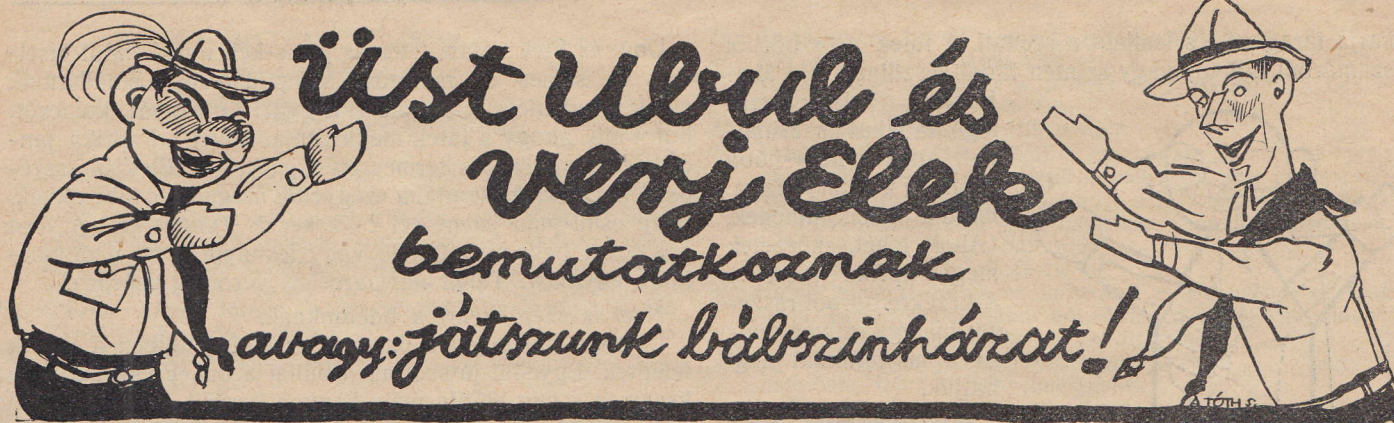 Üst Ubul és
verj Elek
bemutatkoznak
avagy: játszunk bábszinházat!
A. TÓTH S.